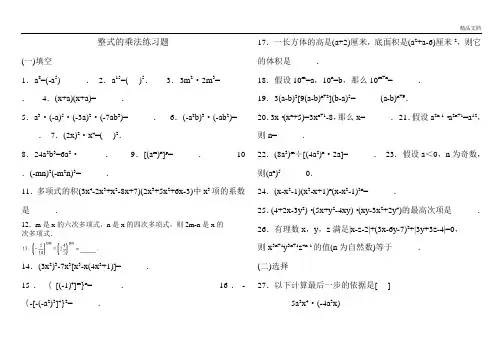 精品文档
整式的乘法练习题
(一)填空
1．a⁸=(-a⁵)______．2．a¹⁵=(  )⁵．3．3m²·2m³=______．4．(x+a)(x+a)=______．
5．a³·(-a)⁵·(-3a)²·(-7ab³)=______．6．(-a²b)³·(-ab²)=______．7．(2x)²·x⁴=(  )²．
8．24a²b³=6a²·______．9．[(aᵐ)ⁿ]ᵖ=______．10．(-mn)²(-m²n)³=______．
11．多项式的积(3x⁴-2x³+x²-8x+7)(2x³+5x²+6x-3)中x³项的系数是______．
12．m是x的六次多项式，n是x的四次多项式，则2m-n是x的______次多项式．
14．(3x²)³-7x³[x³-x(4x²+1)]=______．
15．{[(-1)⁴]ᵐ}ⁿ=______．16．-{-[-(-a²)³]⁴}²=______．
17．一长方体的高是(a+2)厘米，底面积是(a²+a-6)厘米²，则它的体积是______．
18．假设10ᵐ=a，10ⁿ=b，那么10ᵐ⁺ⁿ=______．
19．3(a-b)²[9(a-b)ⁿ⁺²](b-a)⁵=______(a-b)ⁿ⁺⁹．
20．3x·(xⁿ+5)=3xⁿ⁺¹-8，那么x=______．21．假设a²ⁿ⁻¹·a²ⁿ⁺¹=a¹²，则n=______．
22．(8a³)ᵐ÷[(4a²)ⁿ·2a]=______．23．假设a＜0，n为奇数，则(aⁿ)⁵______0．
24．(x-x²-1)(x²-x+1)ⁿ(x-x²-1)²ⁿ=______．
25．(4+2x-3y²)·(5x+y²-4xy)·(xy-3x²+2y⁴)的最高次项是______．
26．有理数x，y，z满足|x-z-2|+(3x-6y-7)²+|3y+3z-4|=0，则x³ⁿ⁺¹y³ⁿ⁺¹z⁴ⁿ⁻¹的值(n为自然数)等于______．
(二)选择
27．以下计算最后一步的依据是[  ]
5a²x⁴·(-4a³x)